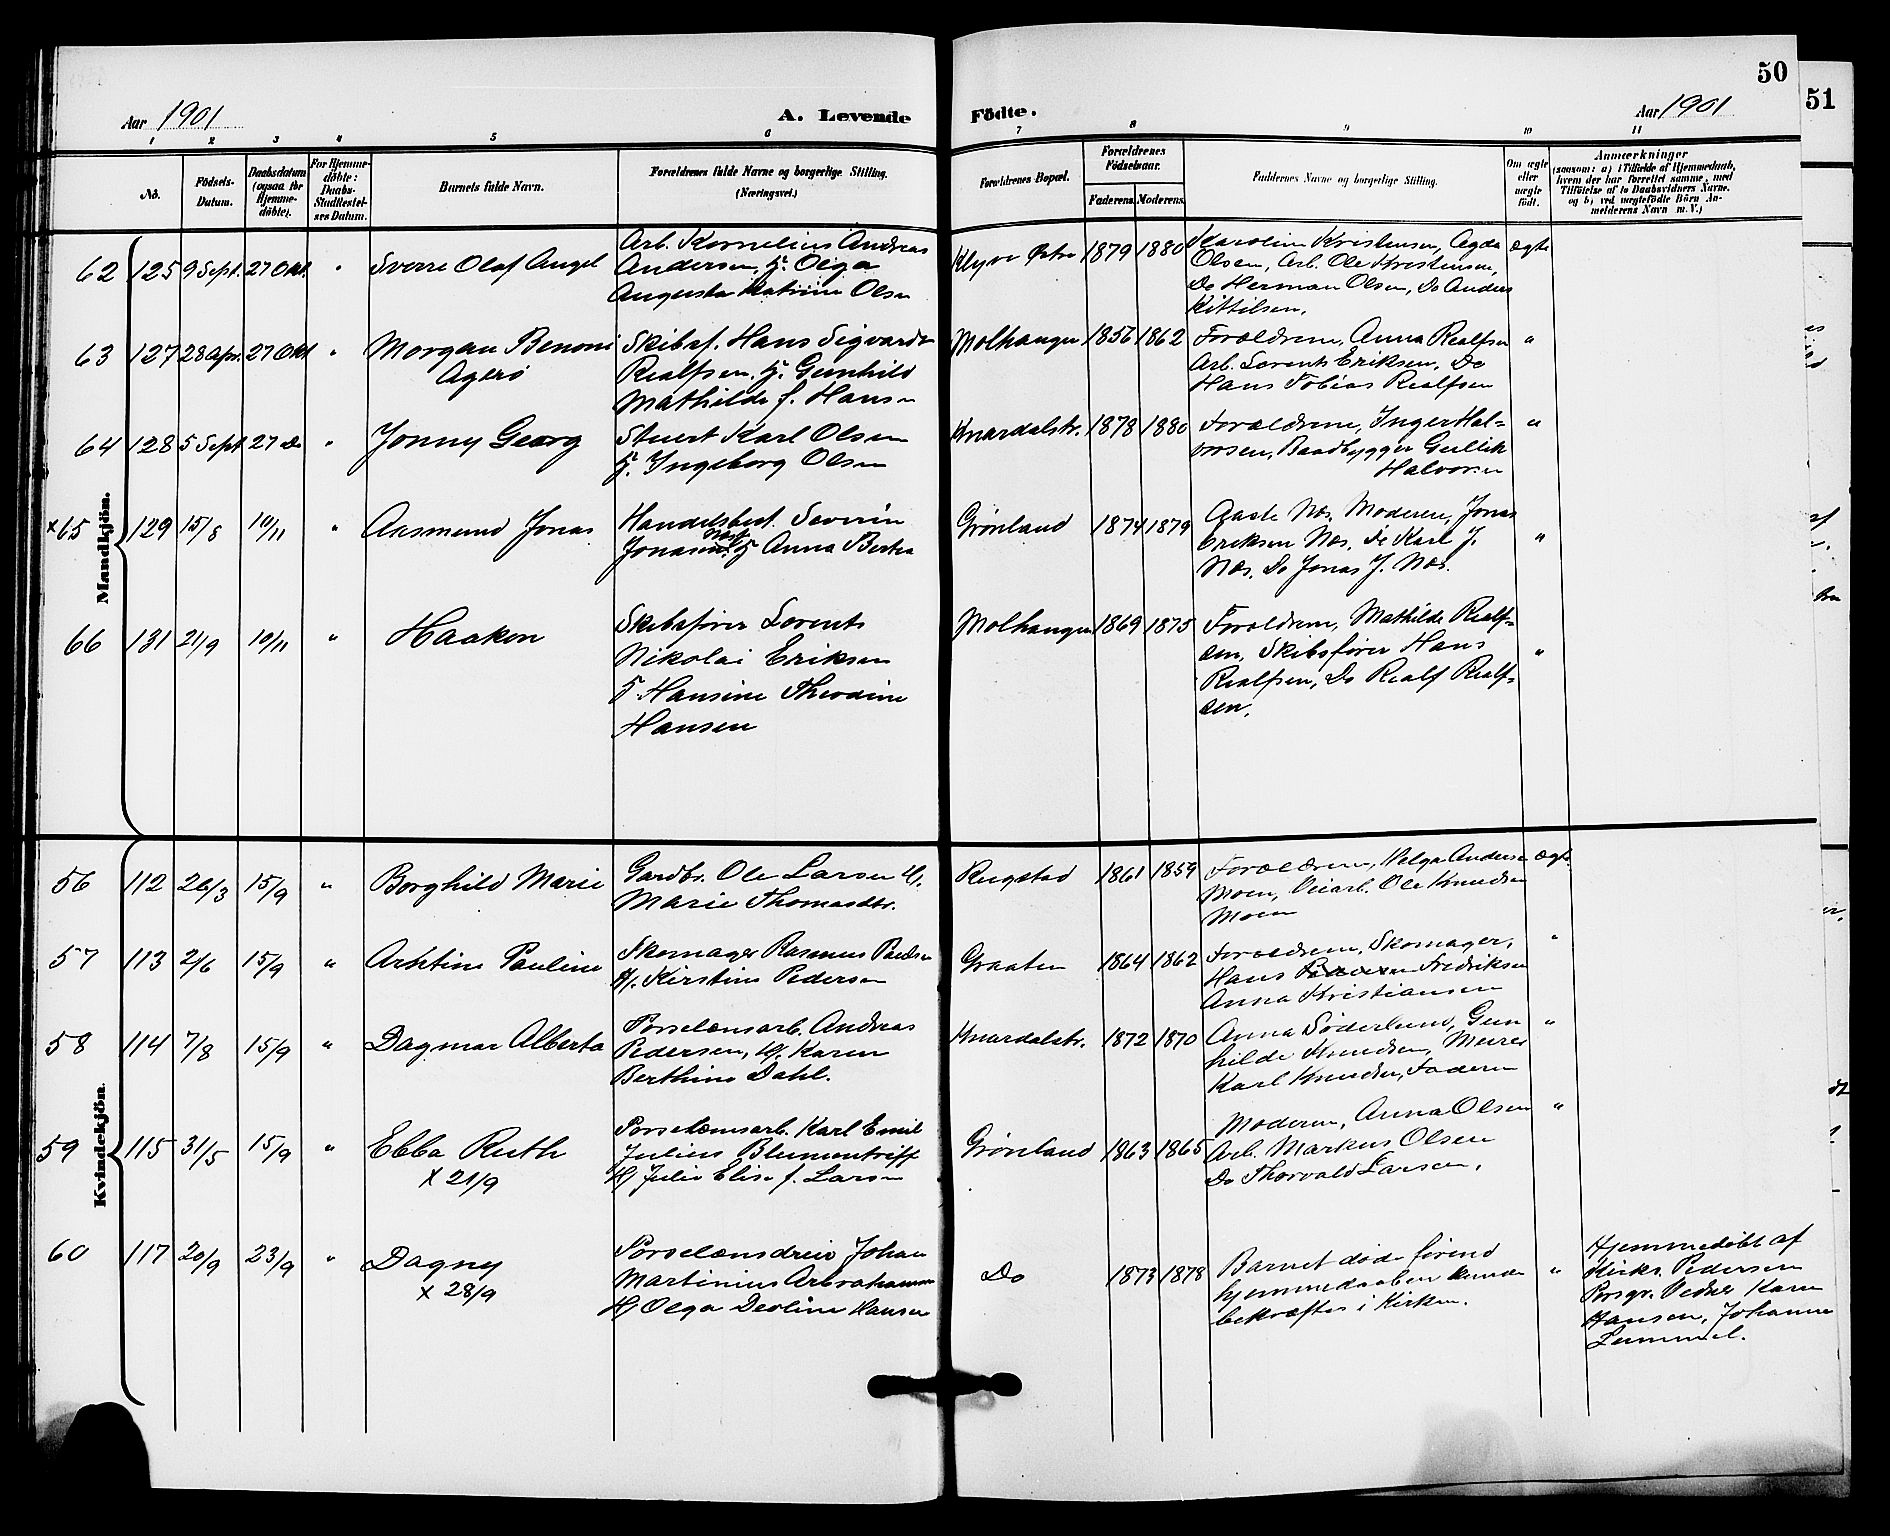 50
51
Aar 1901
A. Levende Födte.
Aar 1901
1 2 3 4 5 6 7 8 9 10 11
No.
Födsels-Datum.
Daabsdatum (ogsaa for Hjemme-döbte).
For Hjemme-döbte: Daabs-Stadfæstel-ses Datum.
Barnets fulde Navn.
Forældrenes fulde Navne og borgerlige Stilling. (Næringsvei.)
Forældrenes Bopæl.
Forældrenes Födselsaar.
Faderens. Moderens.
Faddernes Navne og borgerlige Stilling.
Om ægte eller uægte födt.
Anmærkninger
(saasom: a) i Tilfælde af Hjemmedaab, hvem der har forrettet samme, med Tilföielse af to Daabsvidners Navne. og b) ved uægtefödte Börn An-melderens Navn m. V.)
Mandkjön.
62 125 9 Sept. 27 Okt. " Sverre Olaf Angel
Arb. Kornelius Andreas
Andersen, H. Olga
Augusta Katrine Olsen
Klyve Østre 1879 1880
Karoline Kristensen, Agda
Olsen, Arb. Ole Kristensen,
Do Herman Olsen, Do Anders
Kittilsen.
ægte
63 127 28 Apr. 27 Okt " Morgan Benoni
Agerø
Skibsf. Hans Sigvard
Realfsen, H. Gunhild
Mathilde f. Hansen
Molhaugen 1856 1862
Forældrene, Anna Realfsen
Arb. Lorents Eriksen, Do
Hans Tobias Realfsen
"
64 128 5 Sept 27 Do " Jonny Georg
Stuert Karl Olsen
H. Ingeborg Olsen
Knardalstr. 1878 1880
Forældrene, Inger Hal=
vorsen, Baadbygger Gullik
Halvorsen
"
x 65 129 15/8 10/11 " Aasmund Jonas
Handelsbest. Severin
Jonasen Næs, H Anna Berta
Grønland 1874 1879
Aaste Næs, Moderen, Jonas
Eriksen Næs, Do Karl J.
Næs, Do Jonas J. Næs.
"
66 131 21/9 10/11 " Haakon
Skibsfører Lorents
Nikolai Eriksen
H. Hansine Theodine
Hansen
Molhaugen 1869 1875
Forældrene, Mathilde Realf=
sen, Skibsfører Hans
Realfsen, Do Realf Realf=
sen.
"
Kvindekjön.
56 112 26/3 15/9 " Borghild Marie
Gardbr. Ole Larsen H.
Marie Thomasdtr.
Rugstad 1861 1859
Forældrene, Helga Andersen
Moen, Veiarb. Ole Knudsen
Moen
ægte
57 113 2/6 15/9 " Arhtine Pauline
Skomager Rasmus Paulsen
H. Kirstine Pedersen
Graaten 1864 1862
Forældrene, Skomager,
Hans Fredriksen
Anna Kristiansen
"
58 114 7/8 15/9 " Dagmar Alberta
Porselænsarb. Andreas
Pedersen, H. Karen
Berthine Dahl.
Knardalstr. 1872 1870
Anna Söderlund, Gun
hilde Knudsen, Murer
Karl Knudsen, Faderen
"
59 115 31/5 15/9 " Ebba Ruth
x 21/9
Porselænsarb. Karl Emil
Julius Blumentritt
H Julie Elise f. Larsen
Grønland 1863 1865
Moderen, Anna Olsen
Arb. Markus Olsen
Do Thorvald Larsen.
"
60 117 20/9 23/9 " Dagny
x 28/9
Porselænsdreier Johan
Martinius Abrahamsen
H Olga Deoline Hansen
Do 1873 1878
Barnet døde førend
hjemmedaaben kunde
bekræftes i Kirken.
"
Hjemmedöbt af
Kirks. Pedersen
Porsgr. Vidner Karen
Hansen, Johanne
Lummel.